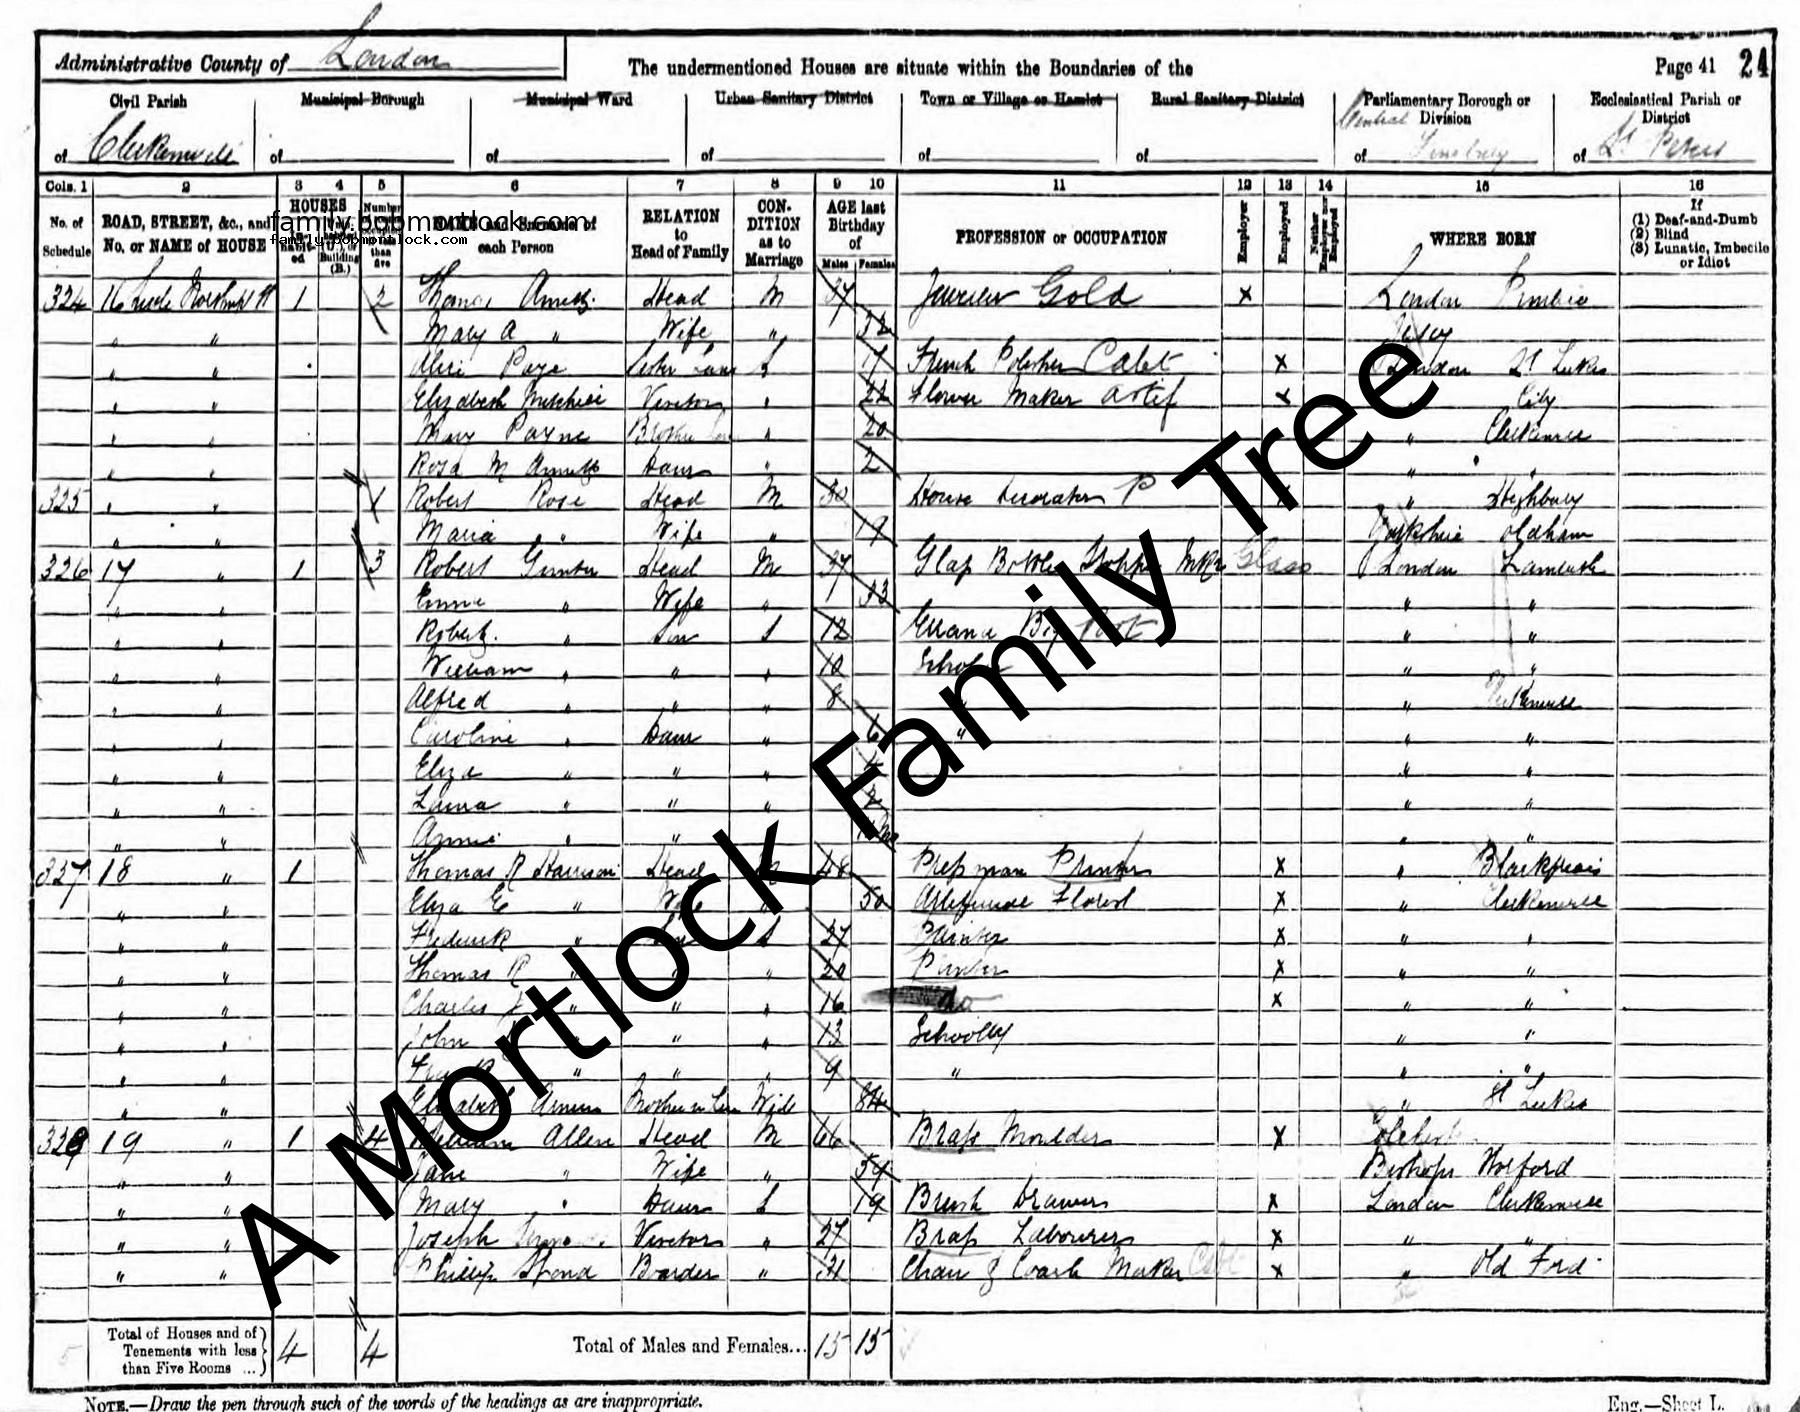 Administrative County of London
The undermentioned Houses are situate within the Boundaries of the
Page 41 24
Civil Parish of Clerkenwell
Municipal Borough of
Municipal Ward of
Urban Sanitary District of
Town or Village or Hamlet of
Rural Sanitary District of
Parliamentary Borough or Division of Central Finsbury
Ecclesiastical Parish or District of St Peters
Cols. 1 2 3 4 5 6 7 8 9 10 11 12 13 14 15 16
No. of Schedule
ROAD, STREET, &c., and No. or NAME of HOUSE
HOUSES
family.bobmortlock.com
family.bobmortlock.com
each Person
RELATION to Head of Family
CONDITION as to Marriage
AGE last Birthday of
Males Females
PROFESSION or OCCUPATION
Employer
Employed
Neither Employer nor Employed
WHERE BORN
If (1) Deaf-and-Dumb (2) Blind (3) Lunatic, Imbecile or Idiot
324 16 1 2 Thomas Head M 37 Jeweller Gold x London Pimlico
" " Mary A " Wife " 32
" " Alice S 17 French Polisher Cabt x London St Lukes
" " Elizabeth Visitor " 22 Flower Maker Artif x " City
" " Mary Payne " 20 " Clerkenwell
" " Rosa M Daur " 2 " "
325 " " 1 Robert Rose Head M 30 House Decorator P " Highbury
" " Maria " Wife " 19 Yorkshire Oldham
326 17 " 1 3 Robert Gunter Head M 37 Glass Bottle Stopper Mkr Glass London Lambeth
" " Emma " Wife " 33 " "
" " Robert " Son S 12 Errand Boy " "
" " William " " " 10 Scholar " "
" " Alfred " " " 8 " " Clerkenwell
" " Caroline " Daur " 6 " " "
" " Eliza " " " 4 " "
" " Laura " " " 2 " "
" " Annie " " " "
327 18 " 1 Thomas R Harrison Head M 48 Press man Printer x " Blackfriars
" " Eliza E " Wife " 50 Artificial Florist x " Clerkenwell
" " Frederick " Son S 27 Printer x " "
" " Thomas R " " " 20 Printer x " "
" " Charles J " " " 16 do x " "
" " John " " " 13 Scholar " "
" " " " " 9 " " "
" " Elizabeth Mother in Law Wid 84 " St Lukes
328 19 " 1 4 William Allen Head M 66 Brass Moulder x Colchester
" " Jane " Wife " 59 Bishops Stortford
" " Mary " Daur S 19 Brush Drawer x London Clerkenwell
" " Joseph Visitor " 27 Brass Labourer x " "
" " Phillip Boarder " 31 Chair & Couch Maker x " Old Ford
5 Total of Houses and of Tenements with less than Five Rooms ... 4 4 Total of Males and Females... 15 15
NOTE.—Draw the pen through such of the words of the headings as are inappropriate.
Eng.—Sheet L.
A Mortlock Family Tree